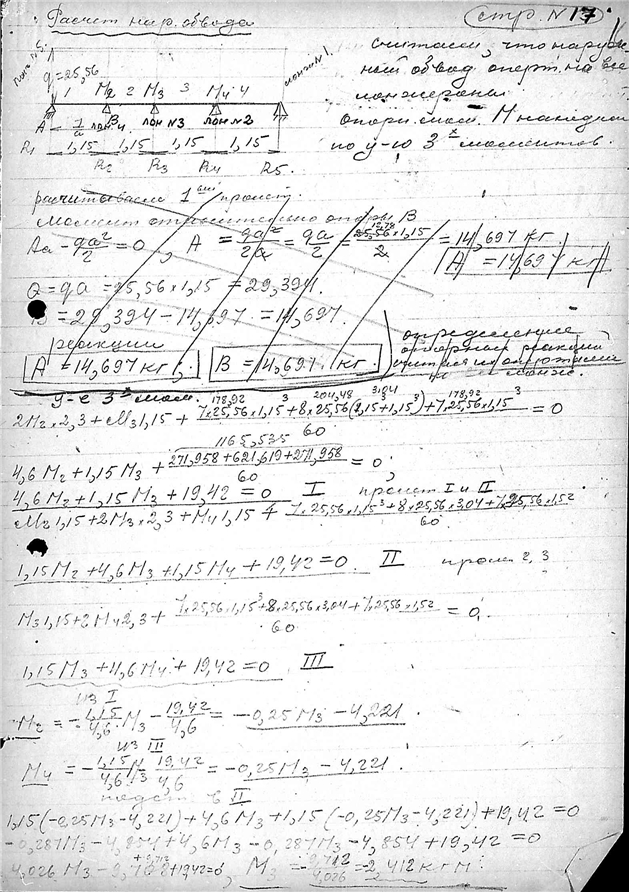 Расчет нар. обвода стр. N 17
считаем, что наруж-
ный обвод оперт на все
лонжероны
опорн. мом. M находим
по у-ю 3х моментов.
q=25,56
1 M2 2 M3 3 M4 4
A B лон.4 лон№3 лон№2 лонж№1.
1,15 1,15 1,15 1,15
R1 R2 R3 R4 R5.
расчитываем 1 пролет.
Момент относительно опоры B
Aa - qa²/2 = 0, A = qa²/2a = qa/2 = 25,56×1,15/2 = 14,697 кг.
A = 14,697 кг
Q = qa = 25,56×1,15 = 29,394.
B = 29,394 - 14,697 = 14,697.
реакции
A = 14,697 кг, B = 14,697 кг.
определение
опорных реакций
у-е 3х мом.
178,92 204,48 3,04 178,92
2M2×2,3 + M3 1,15 + 7×25,56×1,15³+8×25,56(1,15³+1,15³)+7×25,56×1,15³/60 = 0
1165,535
4,6M2 + 1,15M3 + 271,958+621,619+271,958/60 = 0,
4,6M2 + 1,15M3 + 19,42 = 0 I пролет I и II
M2 1,15 + 2M3×2,3 + M4 1,15 + 7×25,56×1,15³+8×25,56×3,04+7×25,56×1,52/60
1,15M2 + 4,6M3 + 1,15M4 + 19,42 = 0. II прол 2, 3
M3 1,15 + 2M4 2,3 + 7×25,56×1,15³+8×25,56×3,04+7×25,56×1,52/60 = 0,
1,15M3 + 4,6M4 + 19,42 = 0 III
из I
M2 = -1,15/4,6 M3 - 19,42/4,6 = -0,25M3 - 4,221.
из III
M4 = -1,15/4,6 M3 - 19,42/4,6 = -0,25M3 - 4,221.
подст. в II
1,15(-0,25M3-4,221)+4,6M3+1,15(-0,25M3-4,221)+19,42=0
-0,287M3-4,854+4,6M3-0,287M3-4,854+19,42=0
4,026M3-9,708+19,42=0, M3 = -9,712/4,026 = -2,412 кг м